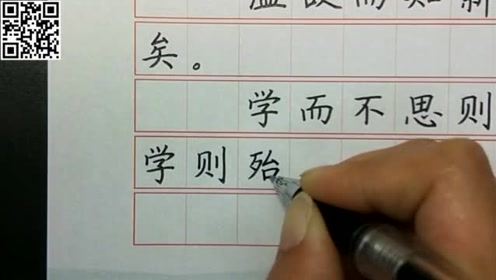 温故而知新
矣。
学而不思则
学则殆